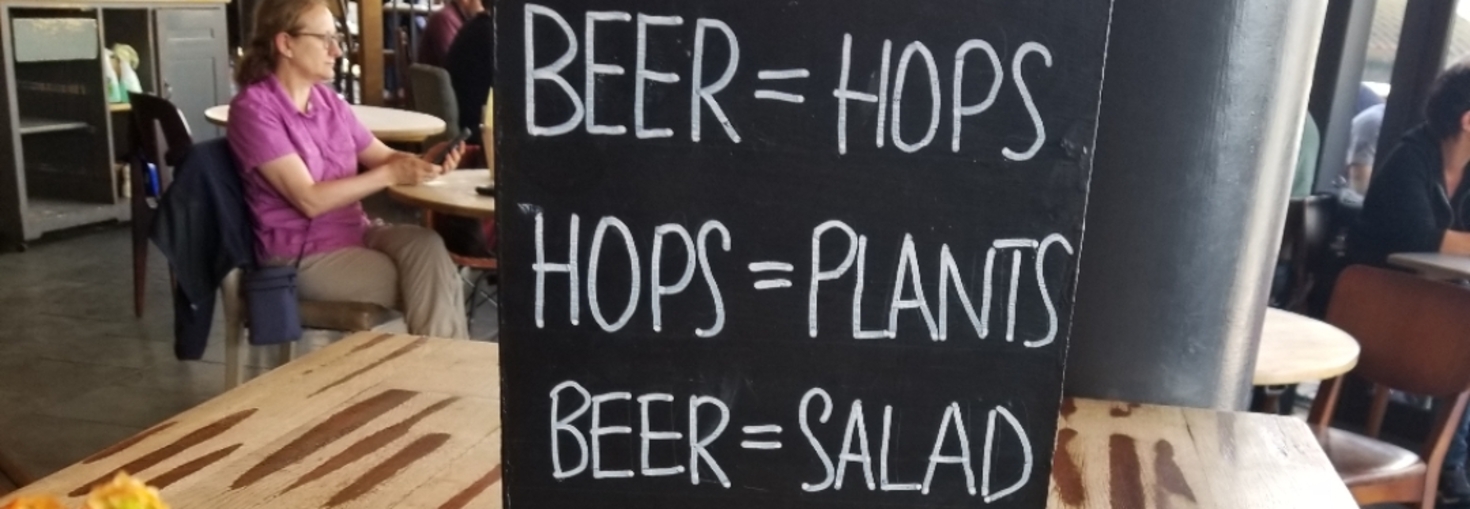 BEER = HOPS
HOPS = PLANTS
BEER = SALAD